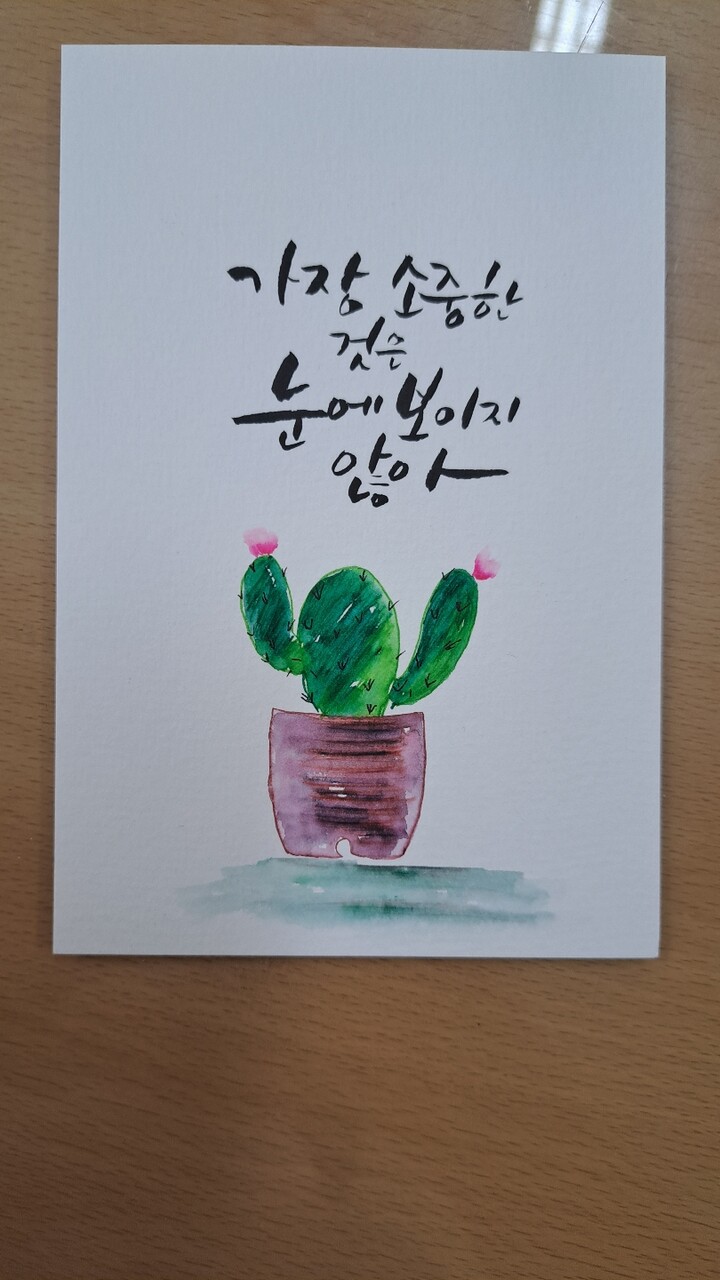 가장 소중한
것은
눈에 보이지
않아